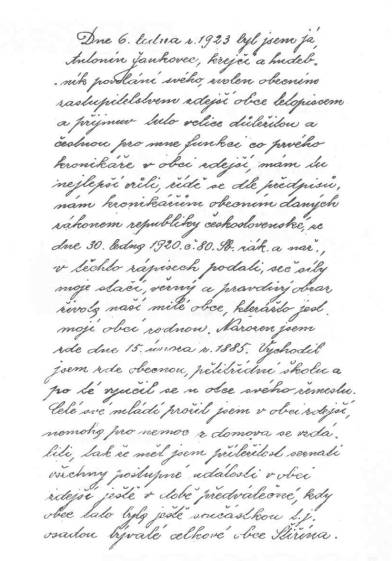 Dne 6. ledna r. 1923 byl jsem já,
Antonín Jankovec, krejčí a hudeb-
ník povolání svého, zvolen obecním
zastupitelstvem zdejší obce letopiscem
a přijmuv tuto velice důležitou a
čestnou pro mne funkci co prvého
kronikáře v obci zdejší, mám tu
nejlepší vůli, řídě se dle předpisů,
nám kronikářům obecním daných
zákonem republiky československé, ze
dne 30. ledna 1920. č. 80. Sb. zák. a nař.,
v těchto zápisech podati, seč síly
moje stačí, věrný a pravdivý obraz
života naší milé obce, kterážto jest
mojí obcí rodnou. Narozen jsem
zde dne 15. února r. 1885. Vychodil
jsem zde obecnou, pětitřídní školu a
po té vyučil se u otce svého řemeslu.
Celé své mládí prožil jsem v obci zdejší,
nemoha pro nemoc z domova se vzdá-
liti, tak že měl jsem příležitost seznati
všechny postupné události v obci
zdejší ještě v době předválečné, kdy
obec tato byla ještě součástkou t.j.
osadou bývalé celkové obce Štiřína.